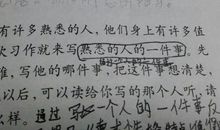 有许多熟悉的人，他们身上有许多值
次习作就来写熟悉的人的一件事。先
谁，写他的哪件事，把这件事想清楚，
以后，可以读给你写的那个人听，请
么样。通过写一个人的一件事反